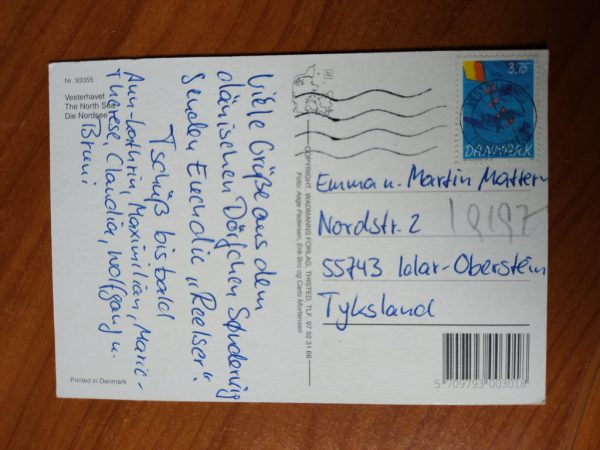 Nr. 93355
Vesterhavet
The North Sea
Die Nordsee
Viele Grüße aus dem
dänischen Dörfchen Søndervig
senden Euch die „Reelser".
Tschüß bis bald
Ann-Kathrin, Maximilian, Marie-
Therese, Claudia, Wolfgang u.
Bruni
Printed in Denmark
COPYRIGHT: WADMANNS FORLAG, THISTED. TLF. 97 92 31 66
Foto: Aage Pedersen, Erik Bro og Carlo Mortensen
3.75
DANMARK
Emma u. Martin Mattern
Nordstr. 2
55743 Idar-Oberstein
Tyksland
5 709793 003018